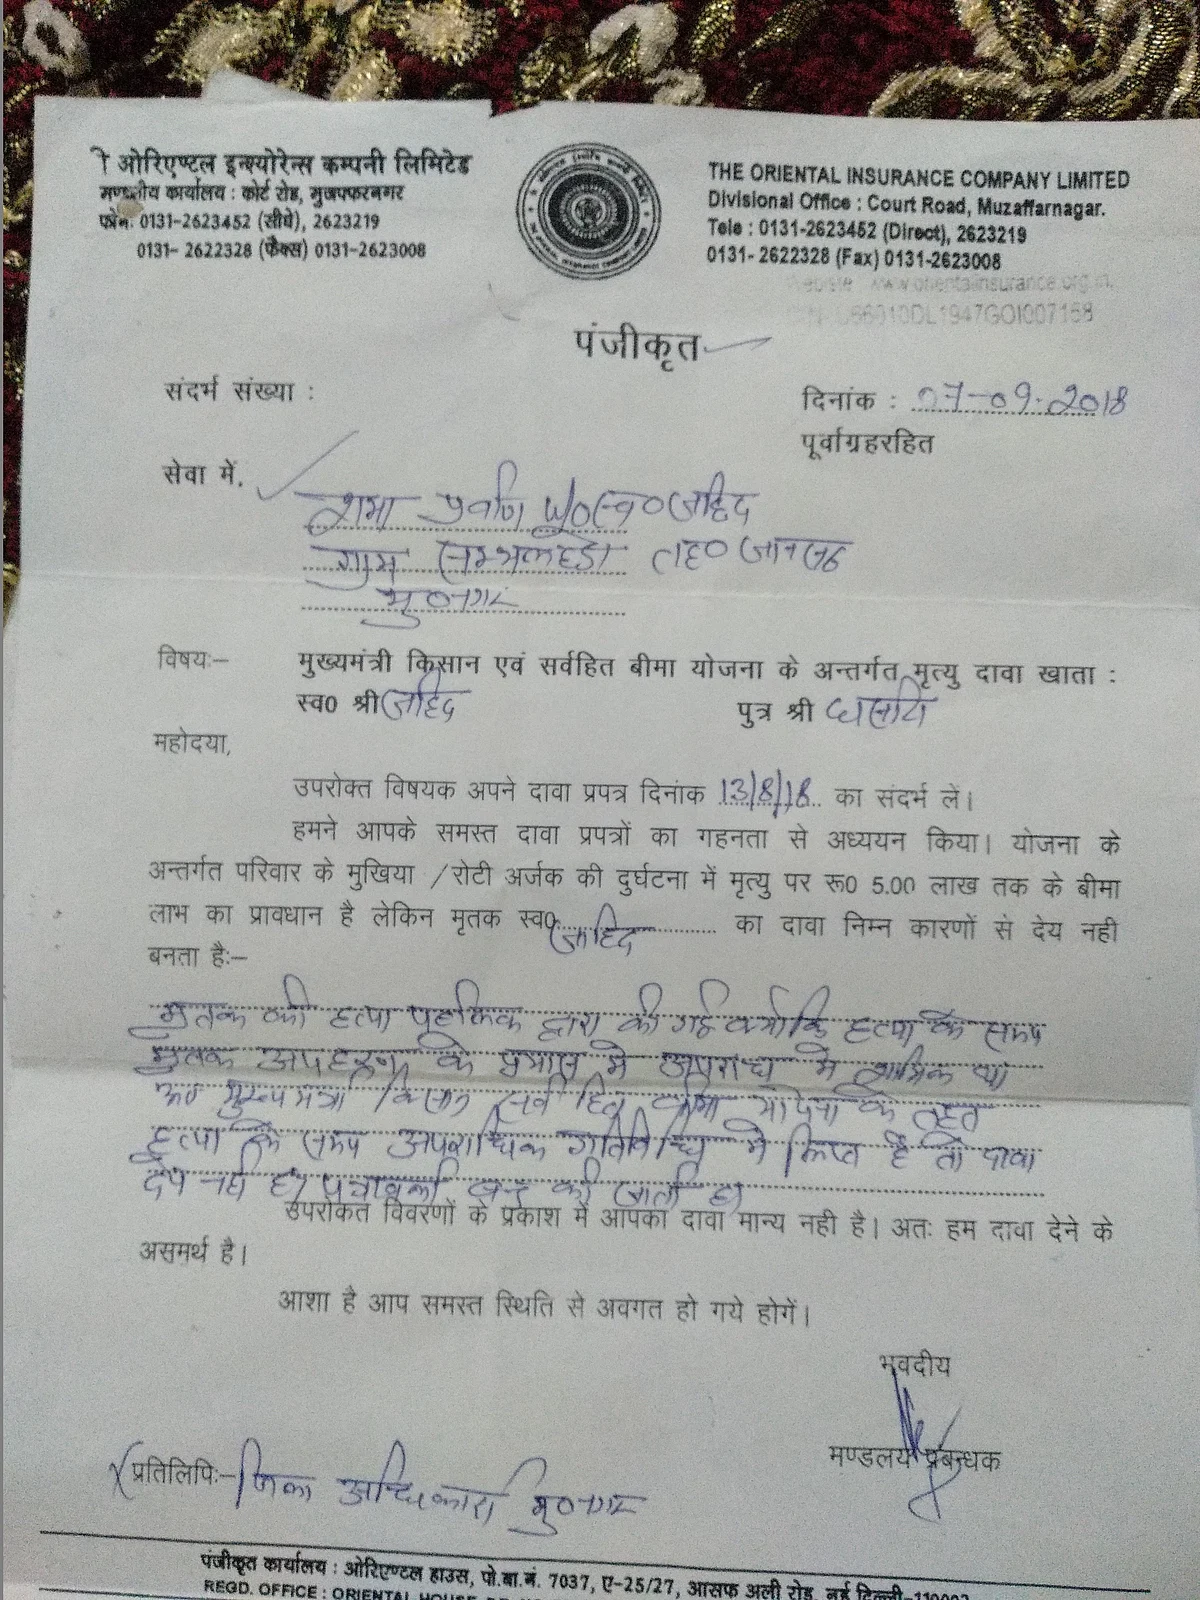 ओरिएण्टल इन्श्योरेन्स कम्पनी लिमिटेड
मण्डलीय कार्यालय : कोर्ट रोड, मुजफ्फरनगर
फोन: 0131-2623452 (सीधे), 2623219
0131- 2622328 (फैक्स) 0131-2623008
THE ORIENTAL INSURANCE COMPANY LIMITED
Divisional Office : Court Road, Muzaffarnagar.
Tele : 0131-2623452 (Direct), 2623219
0131- 2622328 (Fax) 0131-2623008
Website : www.orientalinsurance.org.in,
U66010DL1947GOI007158
पंजीकृत
संदर्भ संख्या :
दिनांक : 07-09-2018
पूर्वाग्रहरहित
सेवा में,
शमा W/o स्व० जाहिद
ग्राम तह० जानसठ
मु०नगर
विषयः– मुख्यमंत्री किसान एवं सर्वहित बीमा योजना के अन्तर्गत मृत्यु दावा खाता :
स्व0 श्री जाहिद पुत्र श्री
महोदया,
उपरोक्त विषयक अपने दावा प्रपत्र दिनांक 13/8/18 का संदर्भ लें।
हमने आपके समस्त दावा प्रपत्रों का गहनता से अध्ययन किया। योजना के
अन्तर्गत परिवार के मुखिया /रोटी अर्जक की दुर्घटना में मृत्यु पर रू0 5.00 लाख तक के बीमा
लाभ का प्रावधान है लेकिन मृतक स्व0 जाहिद का दावा निम्न कारणों से देय नही
बनता हैः–
मृतक की हत्या द्वारा की गई क्योंकि हत्या के समय
मृतक अपहरण के प्रयास मे अपराध मे शामिल था
मुख्यमंत्री किसान सर्वहित बीमा योजना के तहत
हत्या के समय अपराधिक गतिविधि मे लिप्त है तो दावा
देय नही है। पत्रावली बन्द की जाती है।
उपरोक्त विवरणों के प्रकाश में आपका दावा मान्य नही है। अतः हम दावा देने के
असमर्थ है।
आशा है आप समस्त स्थिति से अवगत हो गये होगें।
भवदीय
मण्डलय प्रबन्धक
प्रतिलिपिः– जिला अधिकारी मु०नगर
पंजीकृत कार्यालय : ओरिएण्टल हाउस, पो.बा.नं. 7037, ए-25/27, आसफ अली रोड, नई दिल्ली-110002
REGD. OFFICE : ORIENTAL HOUSE